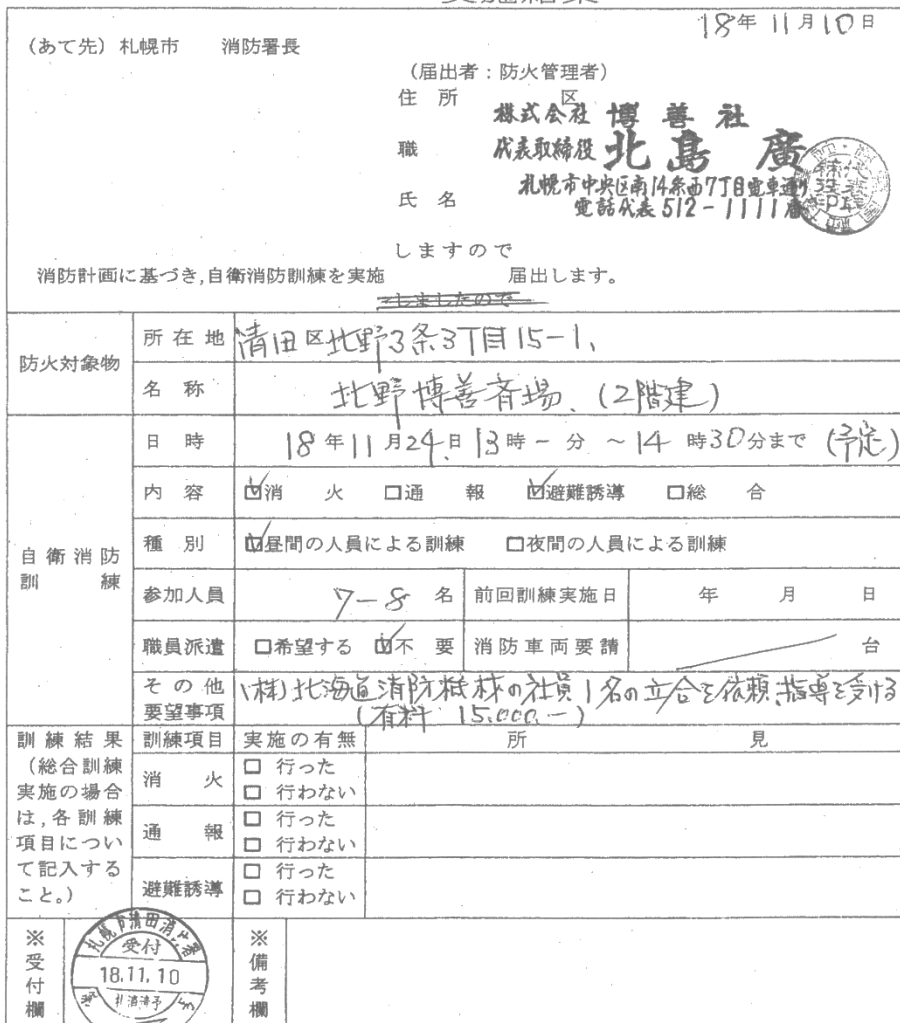 18年 11月10日
(あて先) 札幌市 消防署長
(届出者:防火管理者)
住所 区
株式会社 博善社
職 代表取締役 北島 廣
札幌市中央区南14条西7丁目電車通り
氏名 電話代表 512-1111番
しますので
消防計画に基づき,自衛消防訓練を実施 届出します。
しましたので
防火対象物 所在地 清田区北野3条3丁目15-1、
名称 北野博善斎場、(2階建)
自衛消防訓練 日時 18年11月24日 13時-分 ~14時30分まで (予定)
内容 ☑消火 □通報 ☑避難誘導 □総合
種別 ☑昼間の人員による訓練 □夜間の人員による訓練
参加人員 7-8名 前回訓練実施日 年 月 日
職員派遣 □希望する ☑不要 消防車両要請 台
その他 (株)北海道消防機材の社員1名の立合を依頼、指導を受ける
要望事項 (有料 15,000.-)
訓練結果 訓練項目 実施の有無 所見
(総合訓練
実施の場合
は,各訓練
項目につい
て記入する
こと。)
消火 □ 行った
□ 行わない
通報 □ 行った
□ 行わない
避難誘導 □ 行った
□ 行わない
※受付欄
札幌市清田消防署
受付
18.11.10
※備考欄